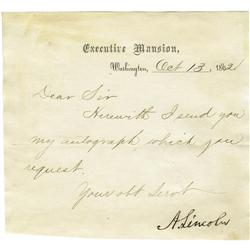 Executive Mansion,
Washington, Oct 13, 1862
Dear Sir
Herewith I send you
my autograph which you
request.
Your obt Servt
A. Lincoln